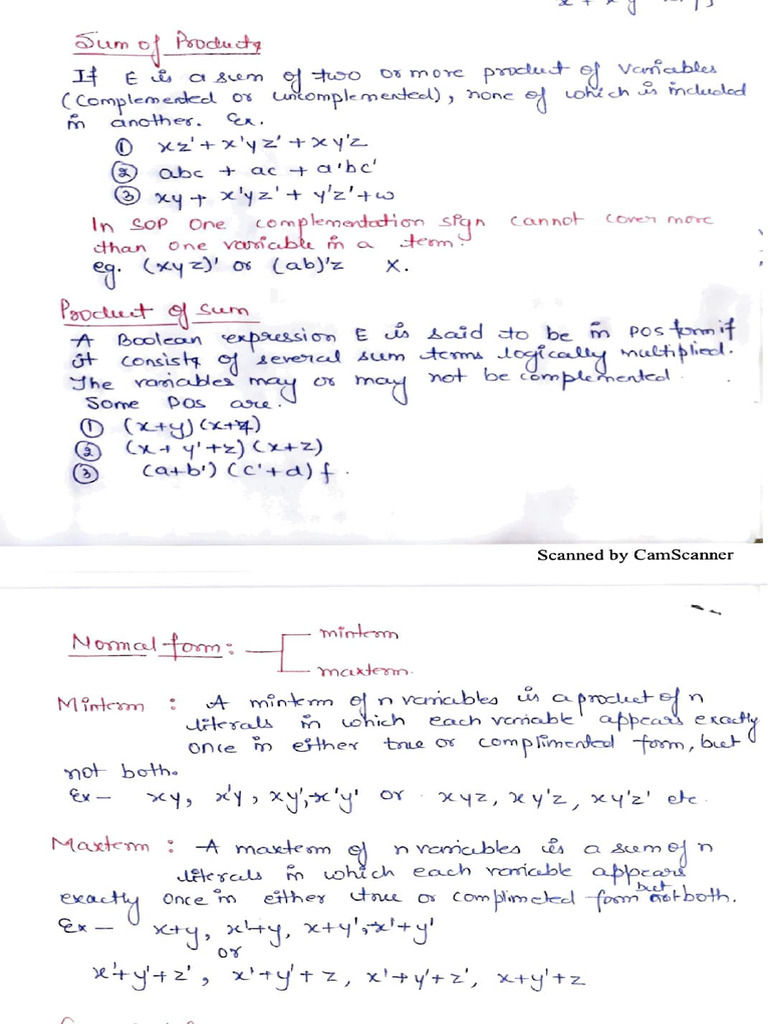 Sum of Products
If E is a sum of two or more product of variables
(complemented or uncomplemented), none of which is included
in another. Ex.
① xz' + x'yz' + xy'z
② abc + ac + a'bc'
③ xy + x'yz' + y'z' + w
In SOP one complementation sign cannot cover more
than one variable in a term.
eg. (xyz)' or (ab)'z X.
Product of sum
A Boolean expression E is said to be in POS form if
it consists of several sum terms logically multiplied.
The variables may or may not be complemented.
Some POS are.
① (x+y)(x+z)
② (x+y'+z)(x+z)
③ (a+b')(c'+d)f.
Scanned by CamScanner
Normal form:
minterm
maxterm.
Minterm : A minterm of n variables is a product of n
literals in which each variable appears exactly
once in either true or complimented form, but
not both.
Ex - xy, x'y, xy', x'y' or xyz, xy'z, xy'z' etc.
Maxterm : A maxterm of n variables is a sum of n
literals in which each variable appears
exactly once in either true or complimeted form but not both.
Ex - x+y, x'+y, x+y', x'+y'
or
x'+y'+z', x'+y'+z, x'+y'+z', x+y'+z